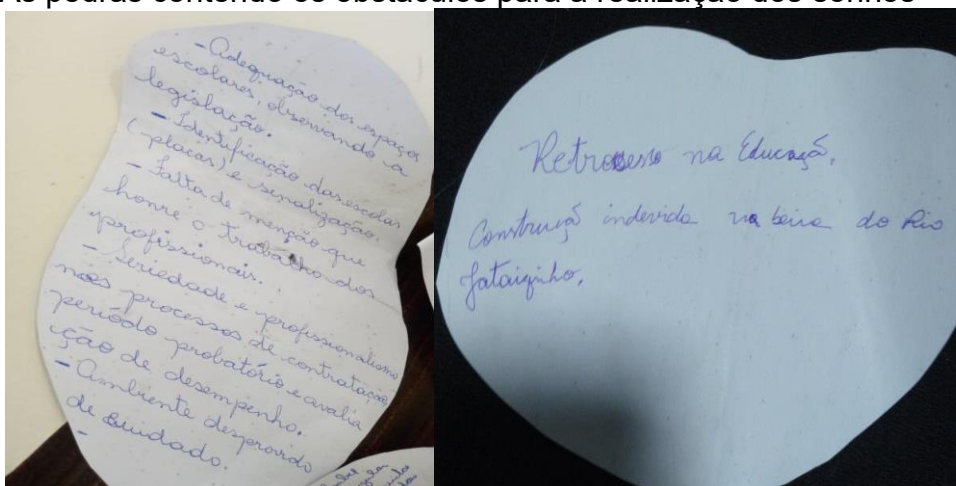 As pedras contendo os obstáculos para a realização dos sonhos
- Adequação dos espaços
escolares, observando a
legislação.
- Identificação das escolas
(placas) e sinalização.
- Falta de menção que
honre o trabalho dos
profissionais.
- Seriedade e profissionalismo
nos processos de contratação,
período probatório e avalia
ção de desempenho.
- Ambiente desprovido
de cuidado.
-
Retrocesso na Educaçã,
Construçã indevida na beira do Rio
Jataizinho,